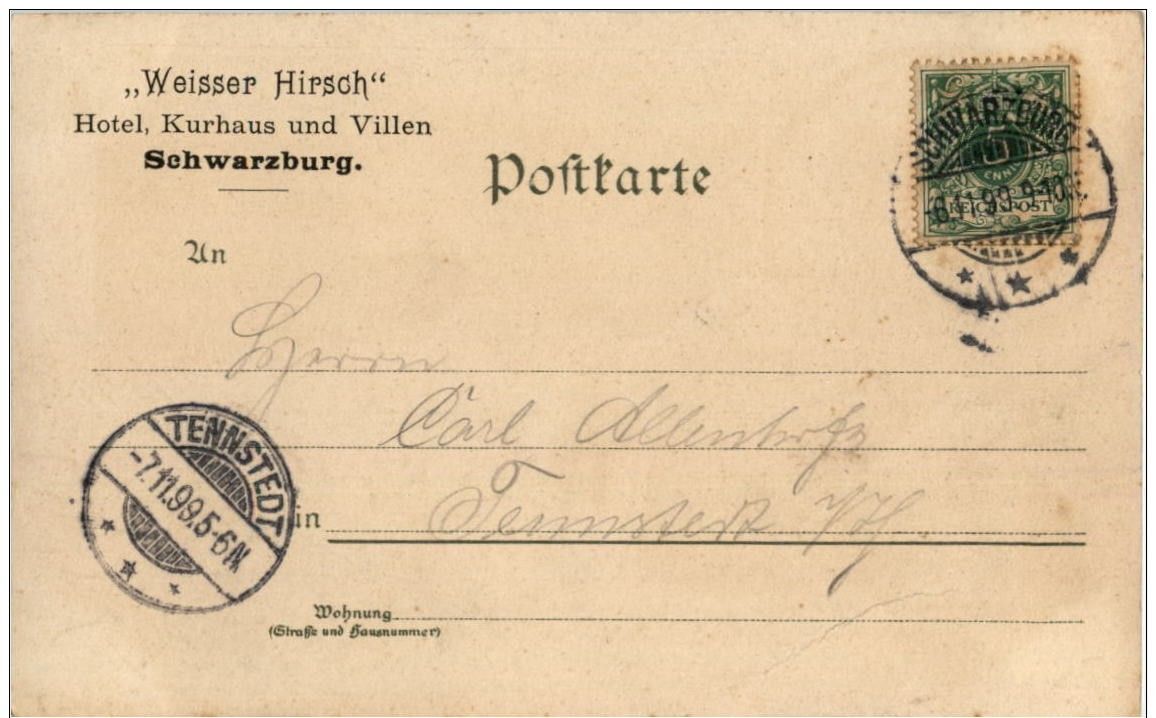 „Weisser Hirsch“
Hotel, Kurhaus und Villen
Schwarzburg.
Postkarte
SCHWARZBURG
-6.11.99.9-10
5
REICHSPOST
An
Herrn
Carl
TENNSTEDT
-7.11.99.5-6N
in Tennstedt i/Th
Wohnung
(Straße und Hausnummer)